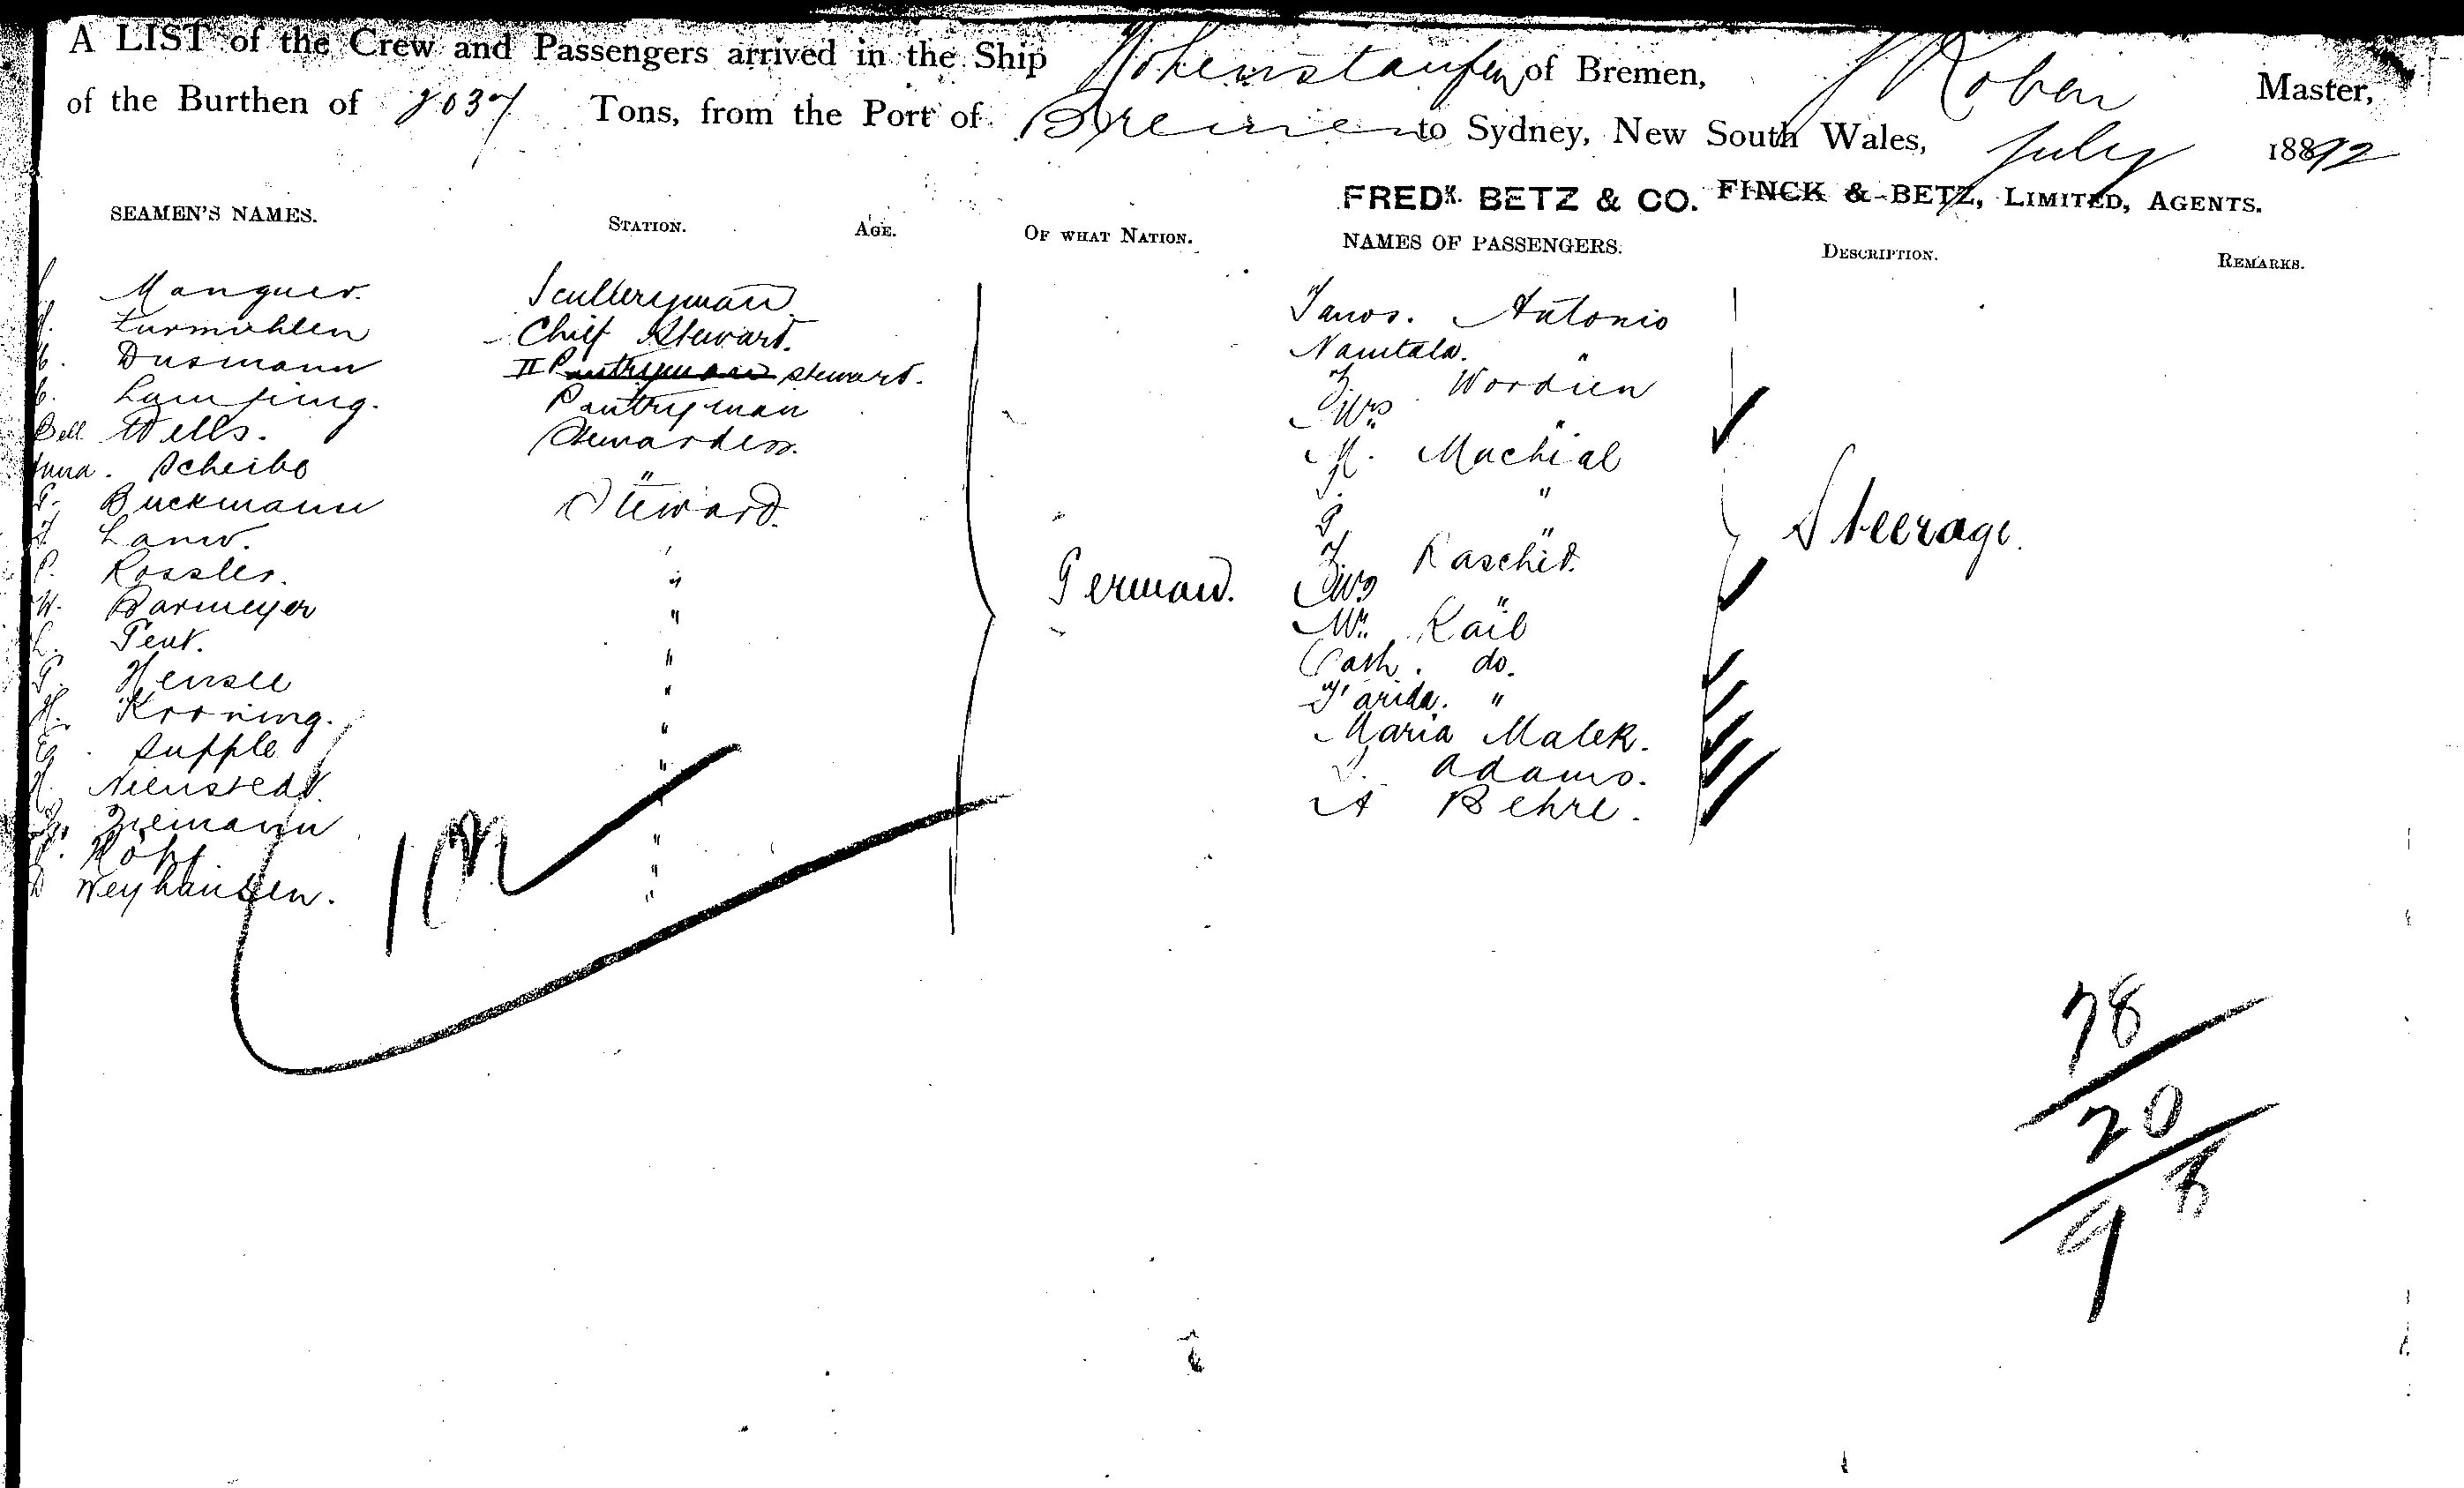 A LIST of the Crew and Passengers arrived in the Ship Hohenstaufen of Bremen, Master,
of the Burthen of 2037 Tons, from the Port of Bremen to Sydney, New South Wales, July 1892
FREDK. BETZ & CO. FINCK & BETZ, LIMITED, AGENTS.
SEAMEN'S NAMES. STATION. AGE. OF WHAT NATION. NAMES OF PASSENGERS. DESCRIPTION. REMARKS.
Sculleryman Antonio
Chief Steward. "
Dusmann II Pantryman steward. Wordien
Pantryman Mrs "
Bell Wells. Stewardess. Machial
Scheibe " "
G. Buckmann Steward. "
Raschid.
P. Rossler. " German. Steerage.
W. Barmeyer " Mrs "
" Mr. Kail
G. Hensel " Cath. do.
H. Kroning. " Farida. "
Supple " Maria Malek.
H. Nienstedt " Adams.
Ziemann " A Behre.
Kopf "
D Weyhausen. "
German.
78
20
98